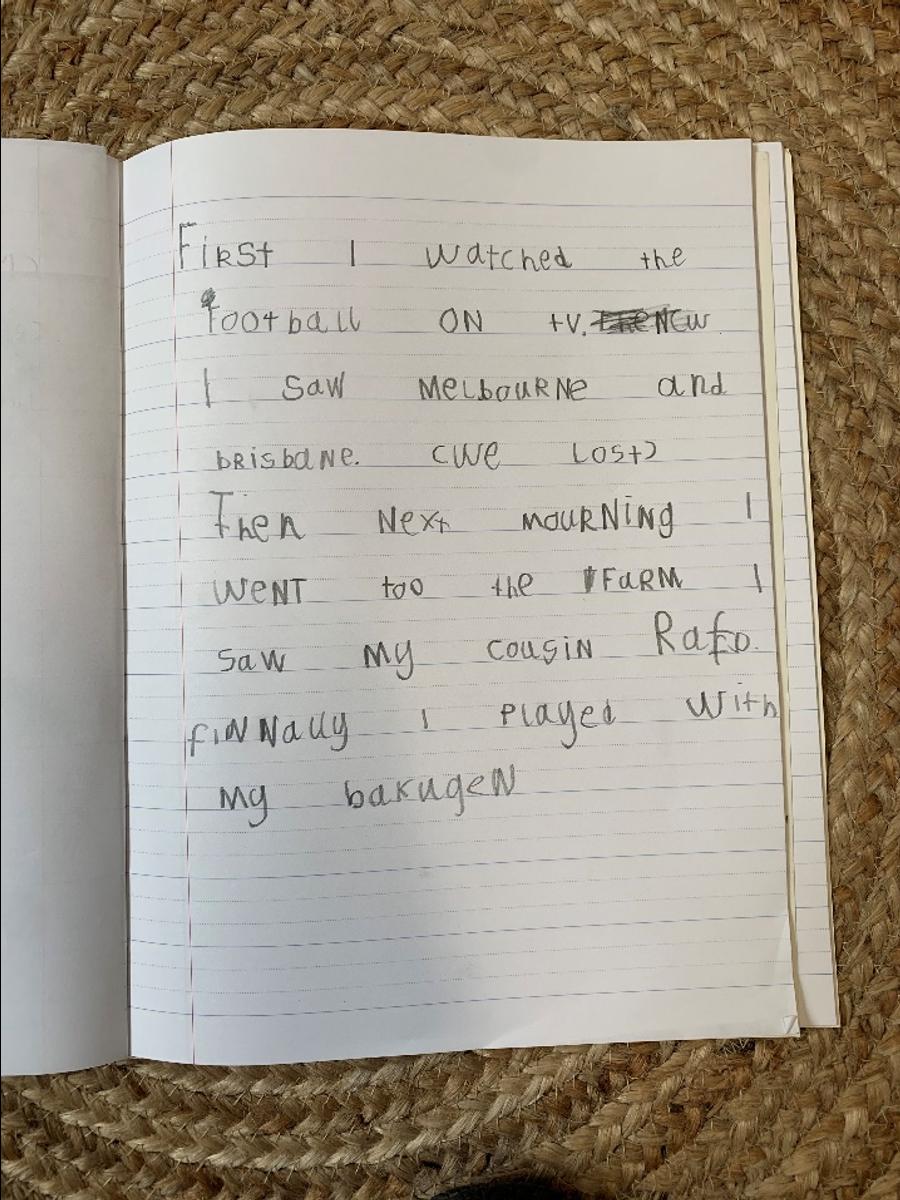 First I watched the
football ON tv. New
I saw Melbourne and
brisbane. (we Lost)
Then Next mourning I
weNT too the FarM I
saw my cousin Rafo.
finnally I played with
my bakugeN